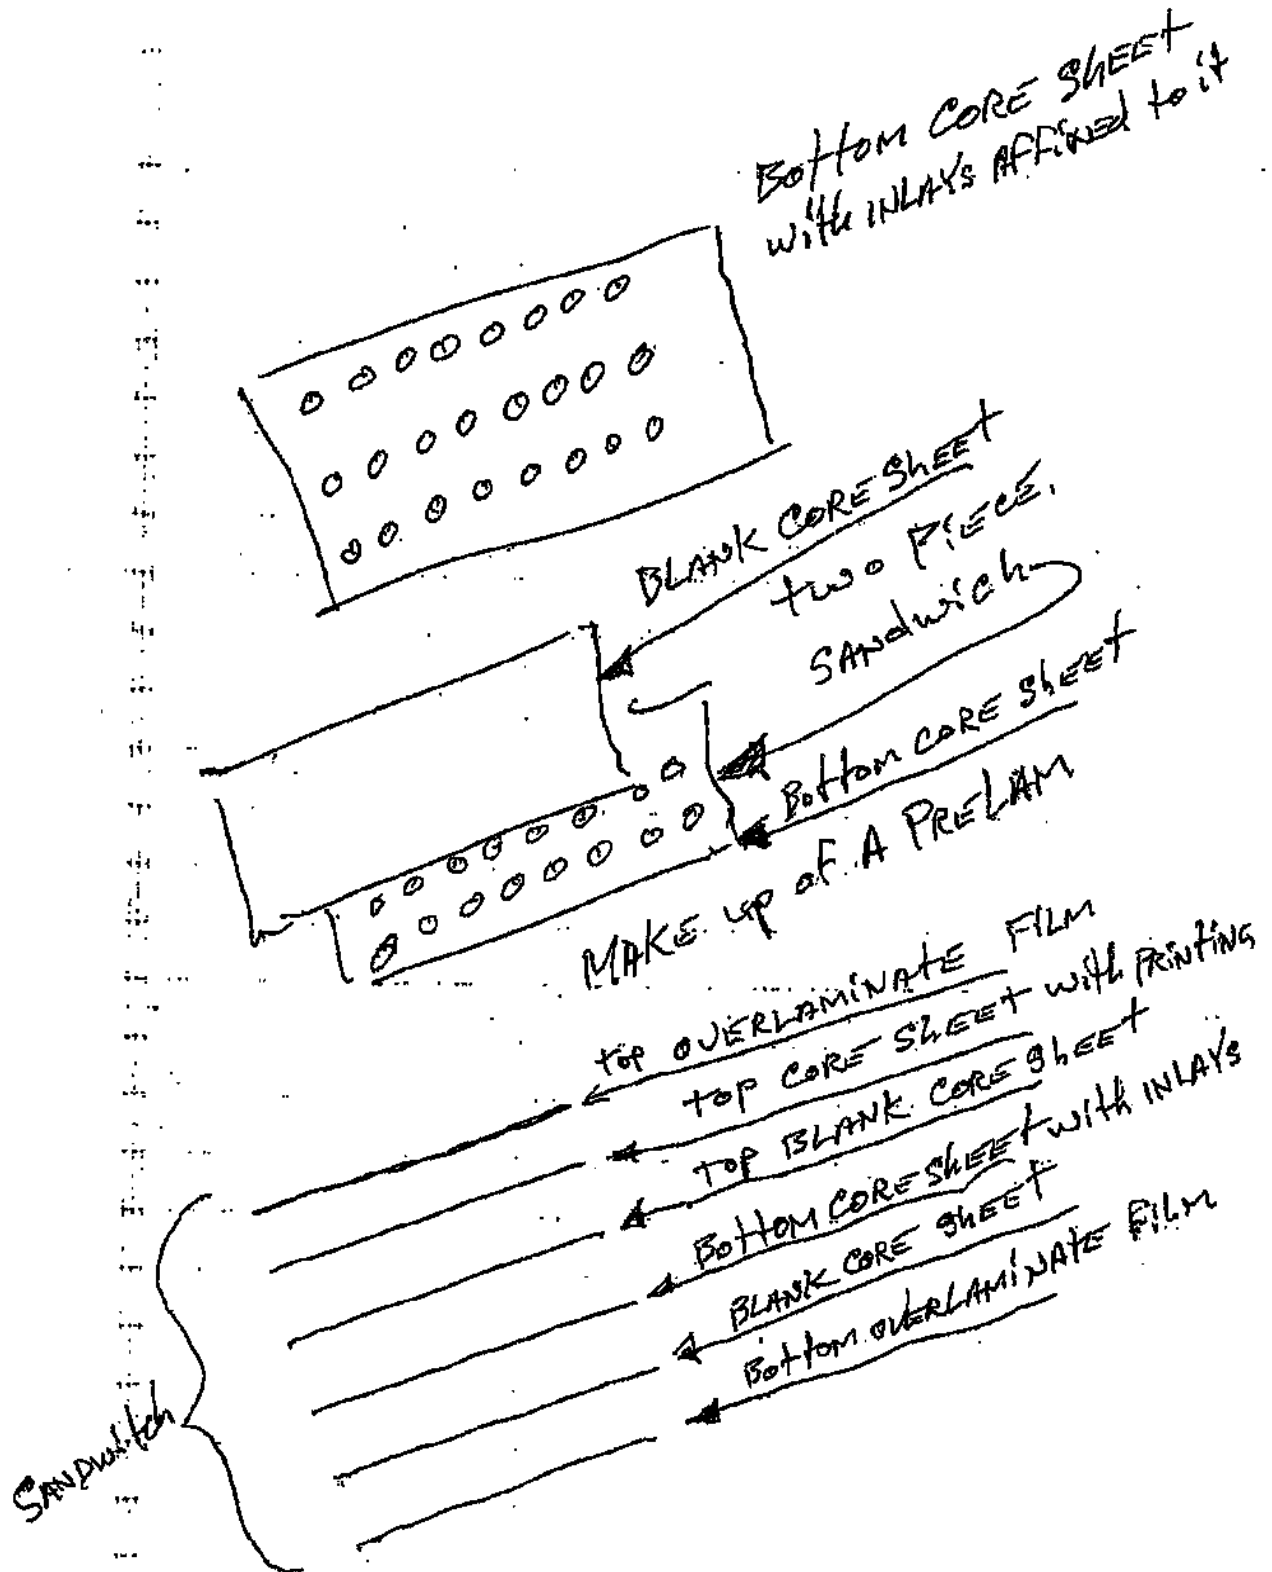 Bottom CORE SHEET
with INLAYS AFFixed to it
BLANK CORE SHEET
two PiECE.
SANdwich
Bottom CORE SHEET
MAKE up of A PRELAM
top OVERLAMINATE FILM
top CORE SHEET with PRINTING
top BLANK CORE SHEET
Bottom CORE SHEET with INLAYS
BLANK CORE SHEET
Bottom OVERLAMINATE FILM
SANDwitch